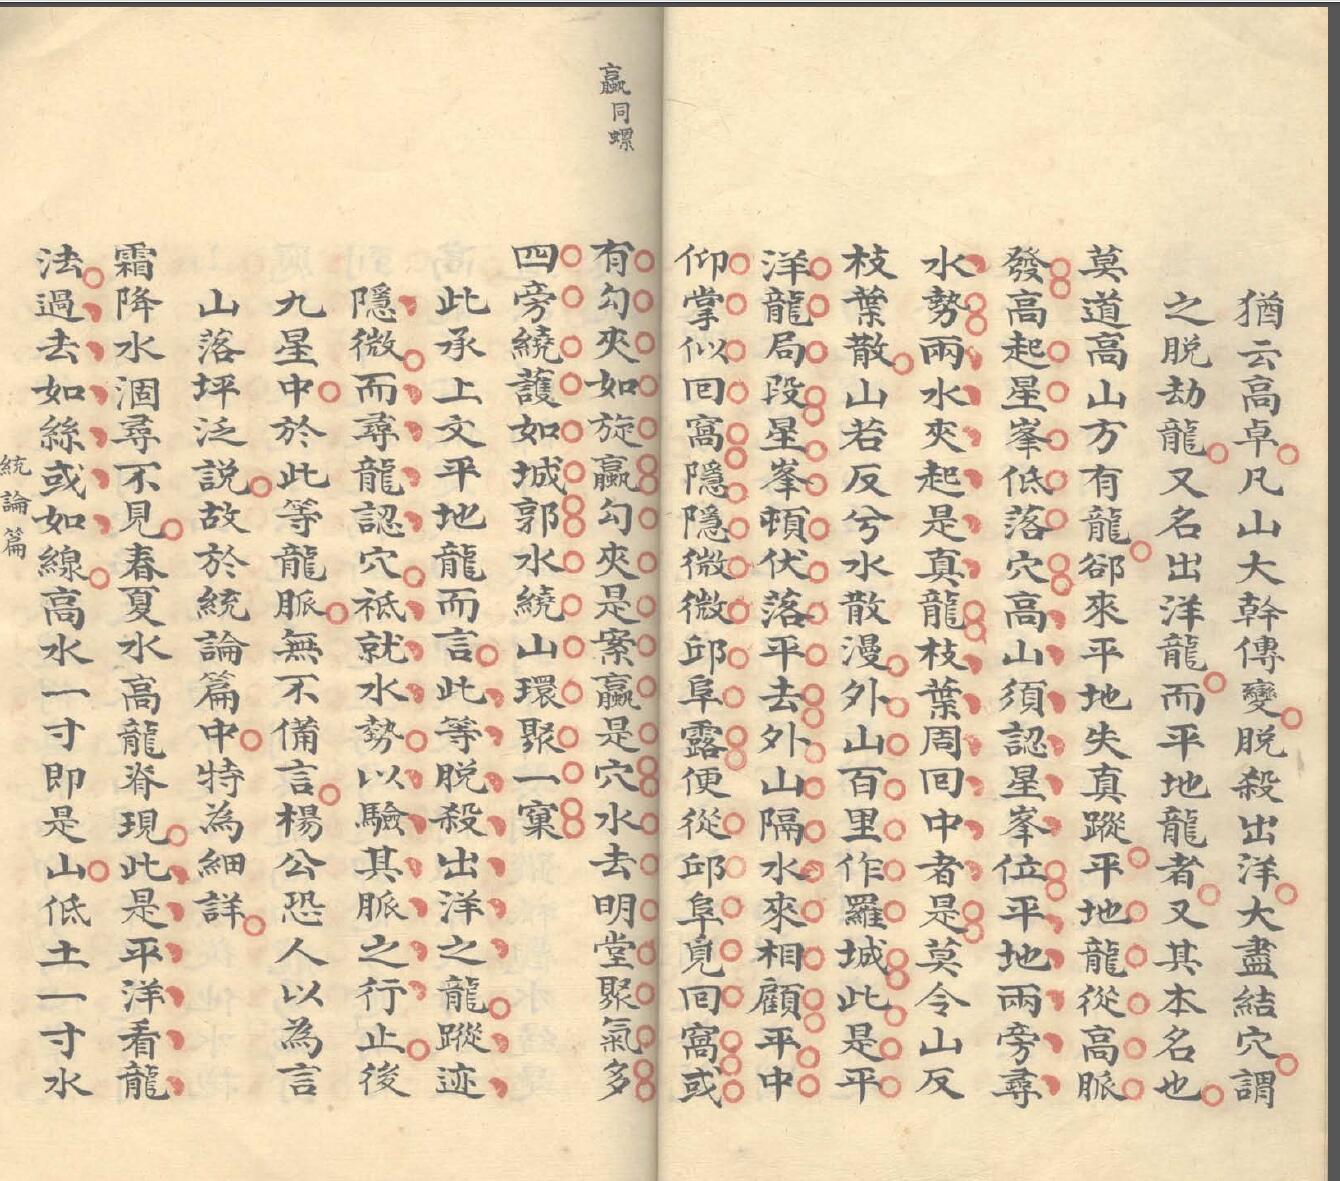 猶云高卓凡山大幹傳變脱殺出洋大盡結穴謂
之脱劫龍又名出洋龍而平地龍者又其本名也
莫道高山方有龍卻來平地失真蹤平地龍從高脈
發高起星峯低落穴高山須認星峯位平地兩旁尋
水勢兩水夾起是真龍枝葉周回中者是莫令山反
枝葉散山若反兮水散漫外山百里作羅城此是平
洋龍局段星峯頓伏落平去外山隔水來相顧平中
仰掌似回窩隱隱微微邱阜露便從邱阜覓回窩或
有勾夾如旋蠃勾夾是案蠃是穴水去明堂聚氣多
四旁繞護如城郭水繞山環聚一窠
此承上文平地龍而言此等脱殺出洋之龍蹤迹
隱微而尋龍認穴祇就水勢以驗其脈之行止後
九星中於此等龍脈無不備言楊公恐人以為言
山落坪泛説故於統論篇中特為細詳
霜降水涸尋不見春夏水高龍脊現此是平洋看龍
法過去如絲或如線高水一寸即是山低土一寸水
蠃同螺
統論篇